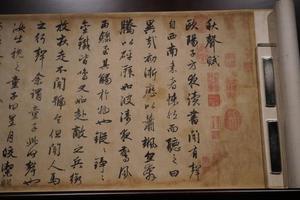 秋聲賦
歐陽子方夜讀書聞有聲
自西南來者悚然而聽之曰
異哉初淅瀝以蕭颯忽奔
騰以砰湃如波濤夜驚風
雨驟至其觸於物也鏦〻錚〻
金鐵皆鳴又如赴敵之兵銜
枚疾走不聞號令但聞人馬
之行聲余謂童子此何聲也
汝出視之童子曰星月皎潔